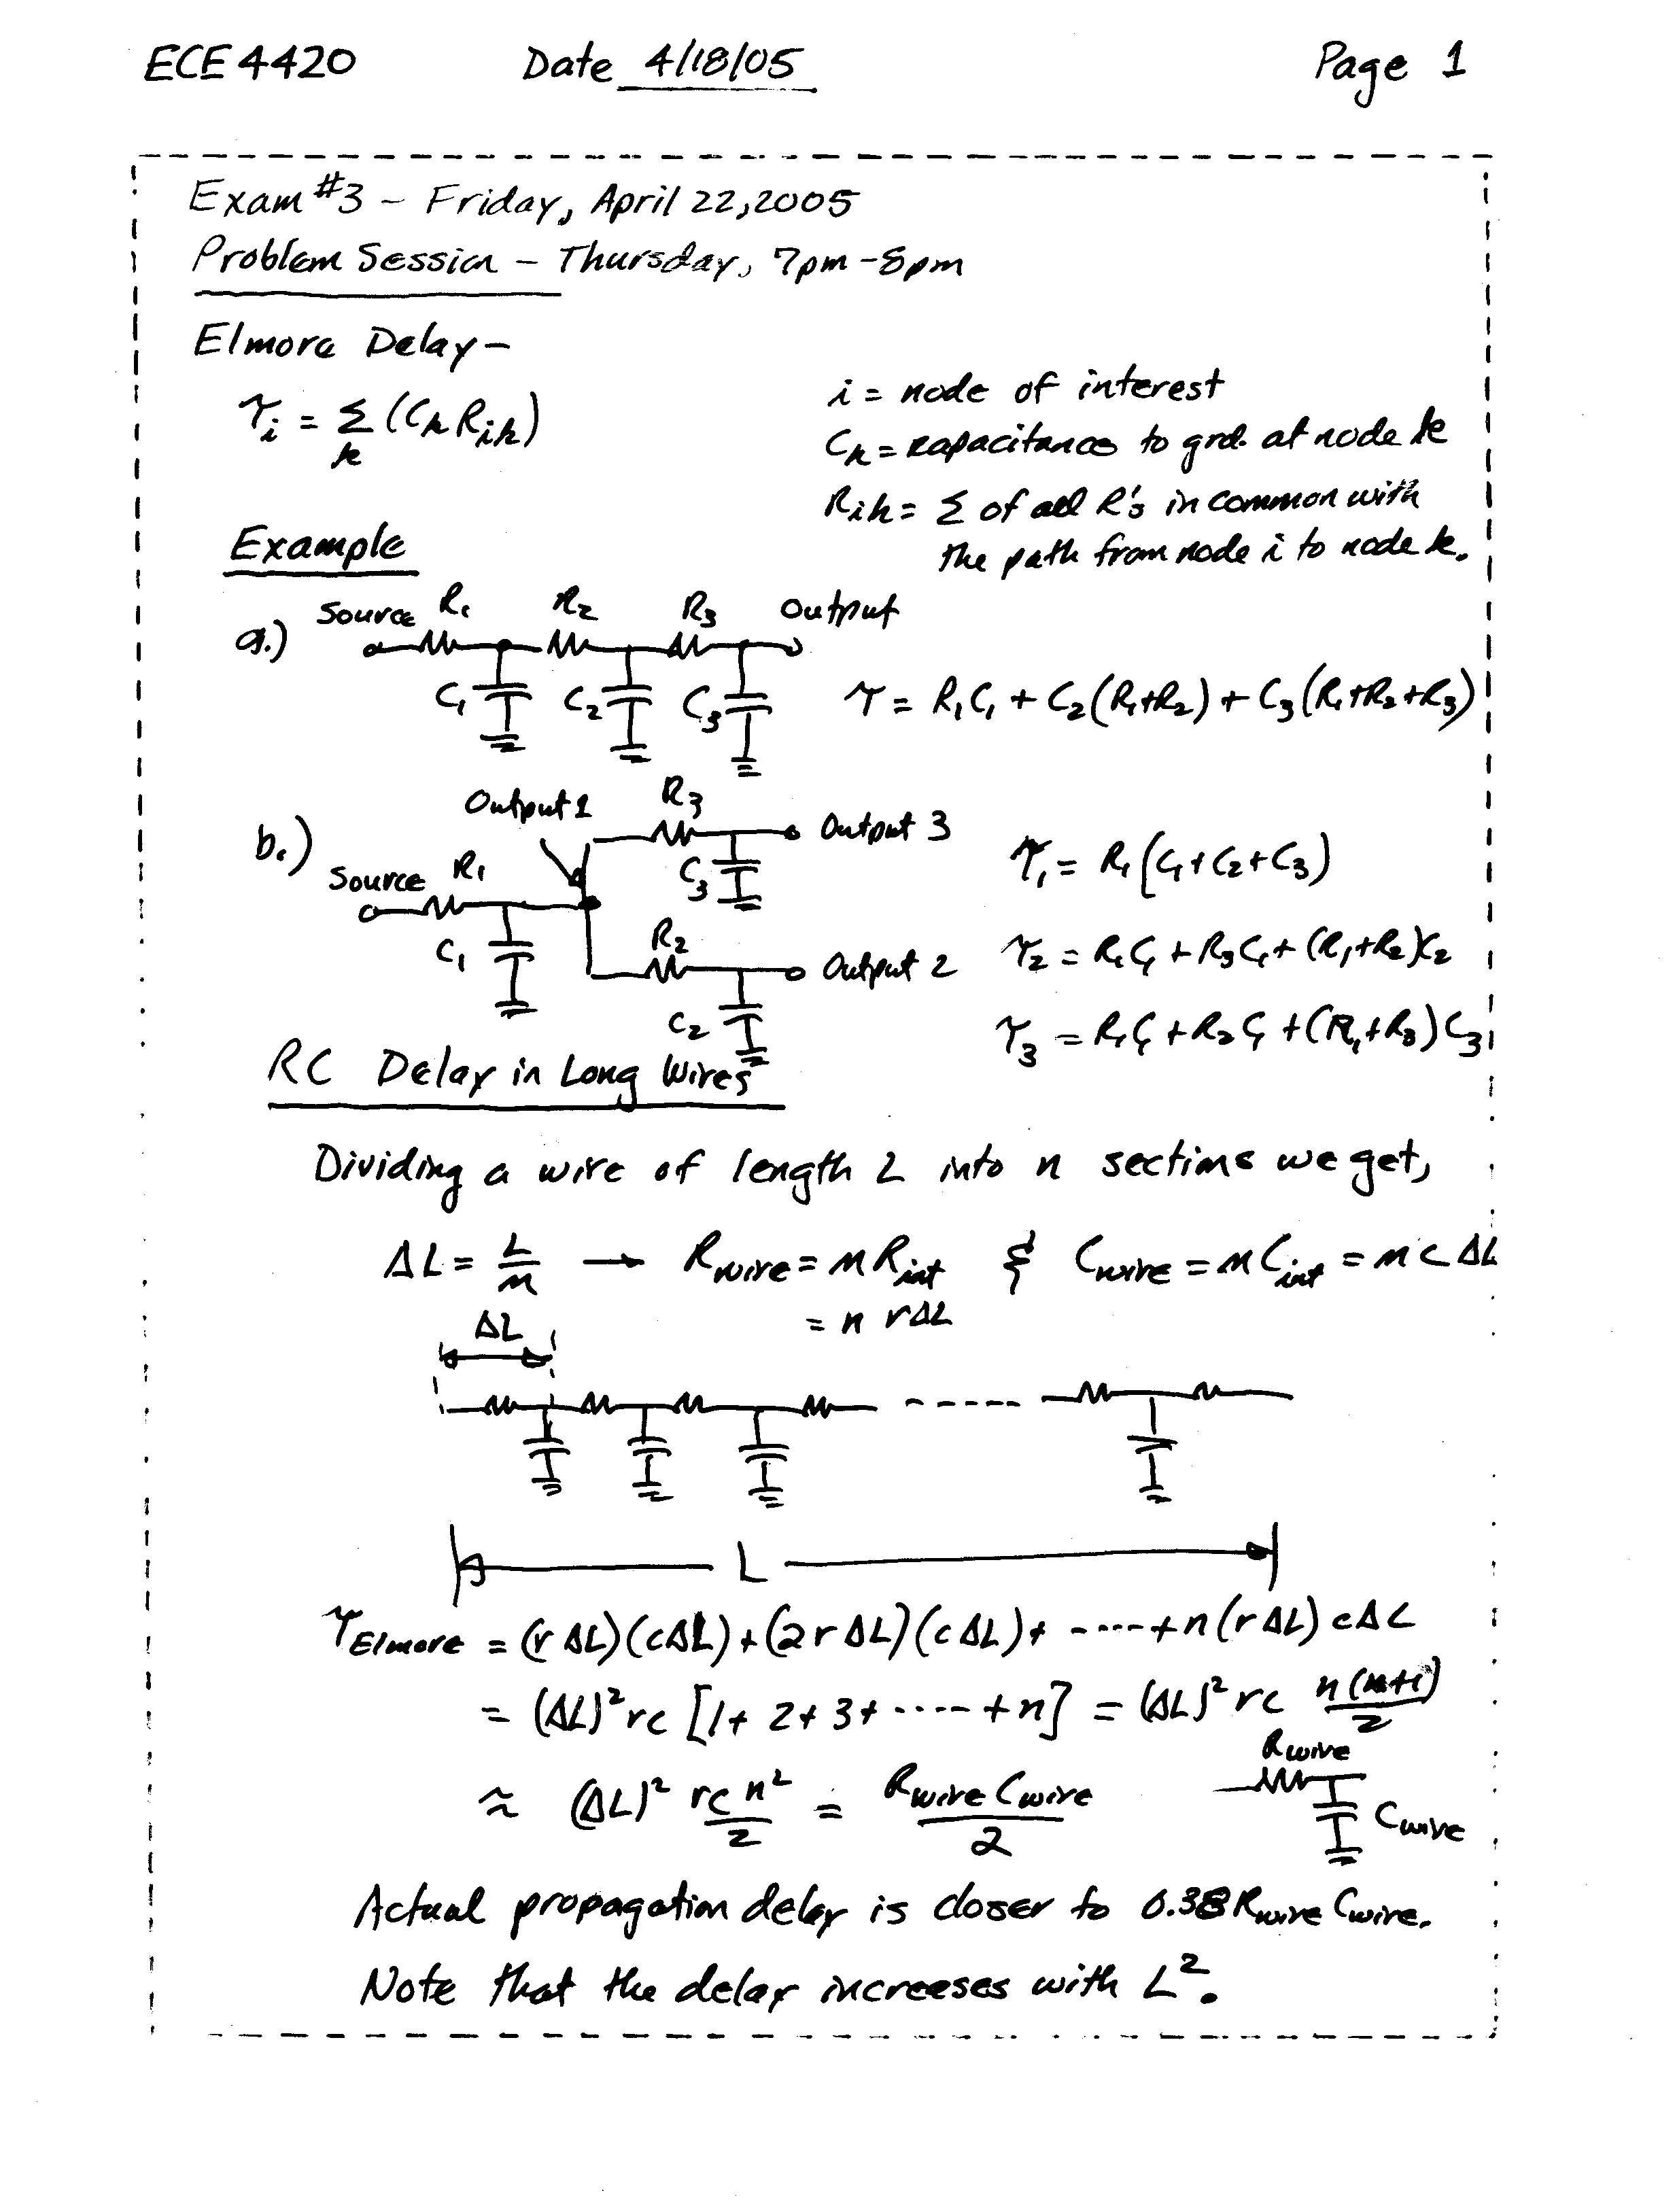 ECE 4420 Date 4/18/05 Page 1
Exam #3 – Friday, April 22, 2005
Problem Session – Thursday, 7pm – 8pm
Elmore Delay –
τi = Σk (Ck Rik)
i = node of interest
Ck = capacitance to grd. at node k
Rik = Σ of all R's in common with
the path from node i to node k.
Example
a.) Source R1 R2 R3 Output
C1 C2 C3 τ = R1C1 + C2(R1+R2) + C3(R1+R2+R3)
b.) Output 1 R3 Output 3
Source R1 C3 τ1 = R1(C1+C2+C3)
C1 R2 Output 2 τ2 = R1C1 + R3C1 + (R1+R2)C2
C2 τ3 = R1C1 + R2C1 + (R1+R3)C3
RC Delay in Long Wires
Dividing a wire of length L into n sections we get,
ΔL = L/n → Rwire = n Rint & Cwire = n Cint = n c ΔL
= n rΔL
ΔL
L
τElmore = (rΔL)(cΔL) + (2rΔL)(cΔL) + ----- + n(rΔL) cΔL
= (ΔL)² rc [1+2+3+-----+n] = (ΔL)² rc n(n+1)/2
≈ (ΔL)² rc n²/2 = Rwire Cwire/2
Rwire
Cwire
Actual propagation delay is closer to 0.38 Rwire Cwire.
Note that the delay increases with L².